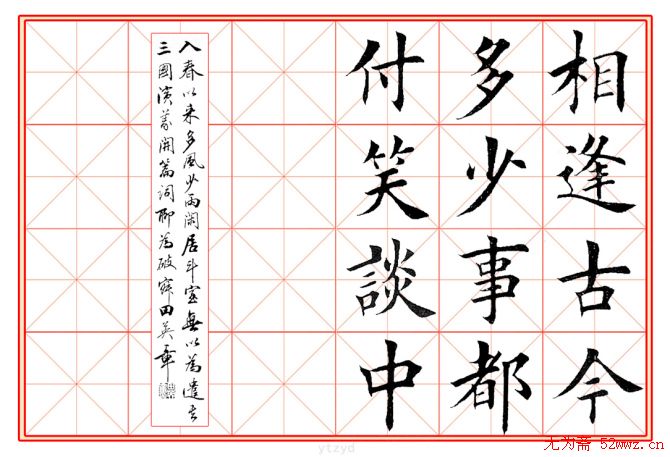 相逢古今
多少事都
付笑談中
入春以来多風少雨閑居斗室無以為遣書
三國演義開篇詞聊為破寂田英章
ytzyd
无为斋 52wwz.cn